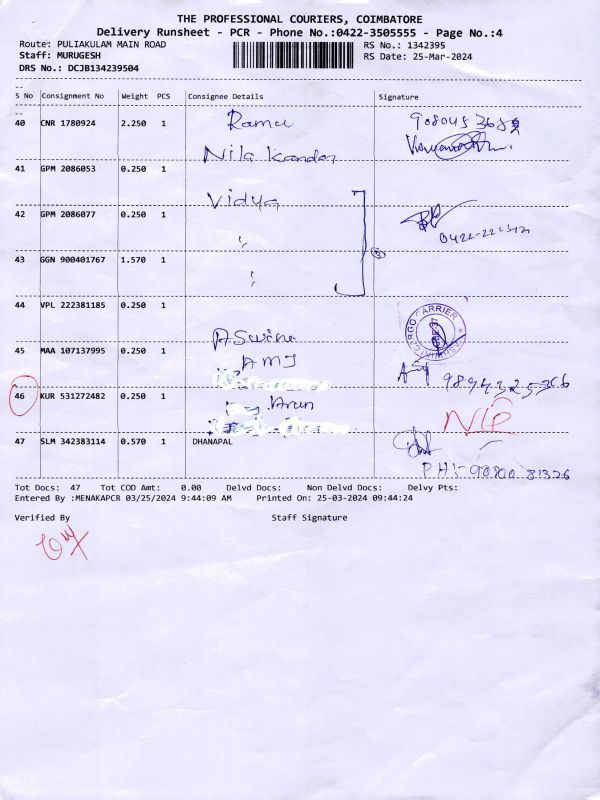 THE PROFESSIONAL COURIERS, COIMBATORE
Delivery Runsheet - PCR - Phone No.:0422-3505555 - Page No.:4
Route: PULIAKULAM MAIN ROAD RS No.: 1342395
Staff: MURUGESH RS Date: 25-Mar-2024
DRS No.: DCJB134239504
S No Consignment No Weight PCS Consignee Details Signature
40 CNR 1780924 2.250 1 Ramu
Nila Kandan
41 GPM 2086053 0.250 1
Vidya
42 GPM 2086077 0.250 1
43 GGN 900401767 1.570 1
44 VPL 222381185 0.250 1
CARGO CARRIER
45 MAA 107137995 0.250 1 AMJ
46 KUR 531272482 0.250 1 Arun
47 SLM 342383114 0.570 1 DHANAPAL
PH:- 90800 81326
Tot Docs: 47 Tot COD Amt: 0.00 Delvd Docs: Non Delvd Docs: Delvy Pts:
Entered By :MENAKAPCR 03/25/2024 9:44:09 AM Printed On: 25-03-2024 09:44:24
Verified By Staff Signature